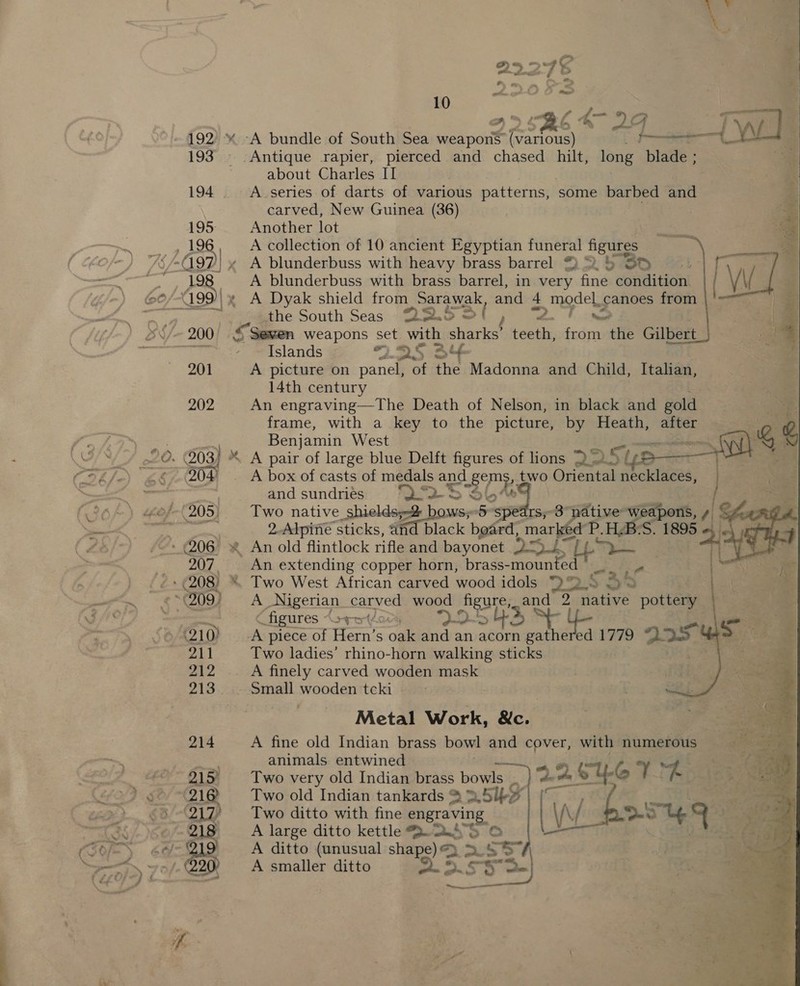 22278
22083
10
192 A bundle of South Sea weapons (various)
193 Antique rapier, pierced and chased hilt, long blade;
about Charles II
194 A series of darts of various patterns, some barbed and
carved, New Guinea (36)
195 Another lot
196 A collection of 10 ancient Egyptian funeral figures
197 A blunderbuss with heavy brass barrel
198 A blunderbuss with brass barrel, in very fine condition
199 A Dyak shield from Sarawak, and 4 model canoes from
the South Seas
200 Seven weapons set with sharks' teeth, from the Gilbert
Islands
201 A picture on panel, of the Madonna and Child, Italian,
14th century
202 An engraving—The Death of Nelson, in black and gold
frame, with a key to the picture, by Heath, after
Benjamin West
203 A pair of large blue Delft figures of lions
204 A box of casts of medals and gems, two Oriental necklaces,
and sundries
205 Two native shields, 2 bows, 5 spears, 3 native weapons,
2 Alpine sticks, and black board, marked P.H.B.S. 1895
206 An old flintlock rifle and bayonet
207 An extending copper horn, brass-mounted
208 Two West African carved wood idols
209 A Nigerian carved wood figure, and 2 native pottery
figures
210 A piece of Hern's oak and an acorn gathered 1779
211 Two ladies' rhino-horn walking sticks
212 A finely carved wooden mask
213 Small wooden tcki
Metal Work, &c.
214 A fine old Indian brass bowl and cover, with numerous
animals entwined
215 Two very old Indian brass bowls
216 Two old Indian tankards
217 Two ditto with fine engraving
218 A large ditto kettle
219 A ditto (unusual shape)
220 A smaller ditto